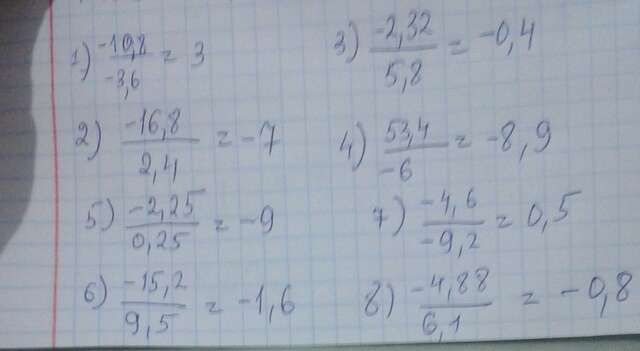 1) -10,8/-3,6 = 3
3) -2,32/5,8 = -0,4
2) -16,8/2,4 = -7
4) 53,4/-6 = -8,9
5) -2,25/0,25 = -9
7) -4,6/-9,2 = 0,5
6) -15,2/9,5 = -1,6
8) -4,88/6,1 = -0,8